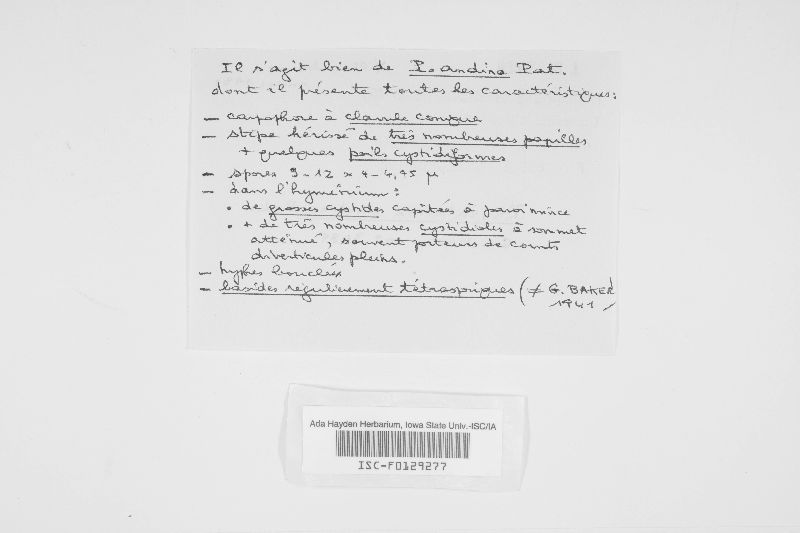 Il s'agit bien de P. andina Pat.
dont il présente toutes les caractéristiques :
– carpophore à clavule conique
– stipe hérissé de très nombreuses papilles
+ quelques poils cystidiformes
– spores 9-12 x 4-4,75 µ
– dans l'hyménium :
• de grosses cystides capitées à paroi mince
• + de très nombreuses cystidioles à sommet
atténué, souvent porteurs de courts
diverticules pleins.
– hyphes bouclées
– basides régulièrement tétrasporiques (≠ G. BAKER
1941)
Ada Hayden Herbarium, Iowa State Univ.-ISC/IA
ISC-F0129277